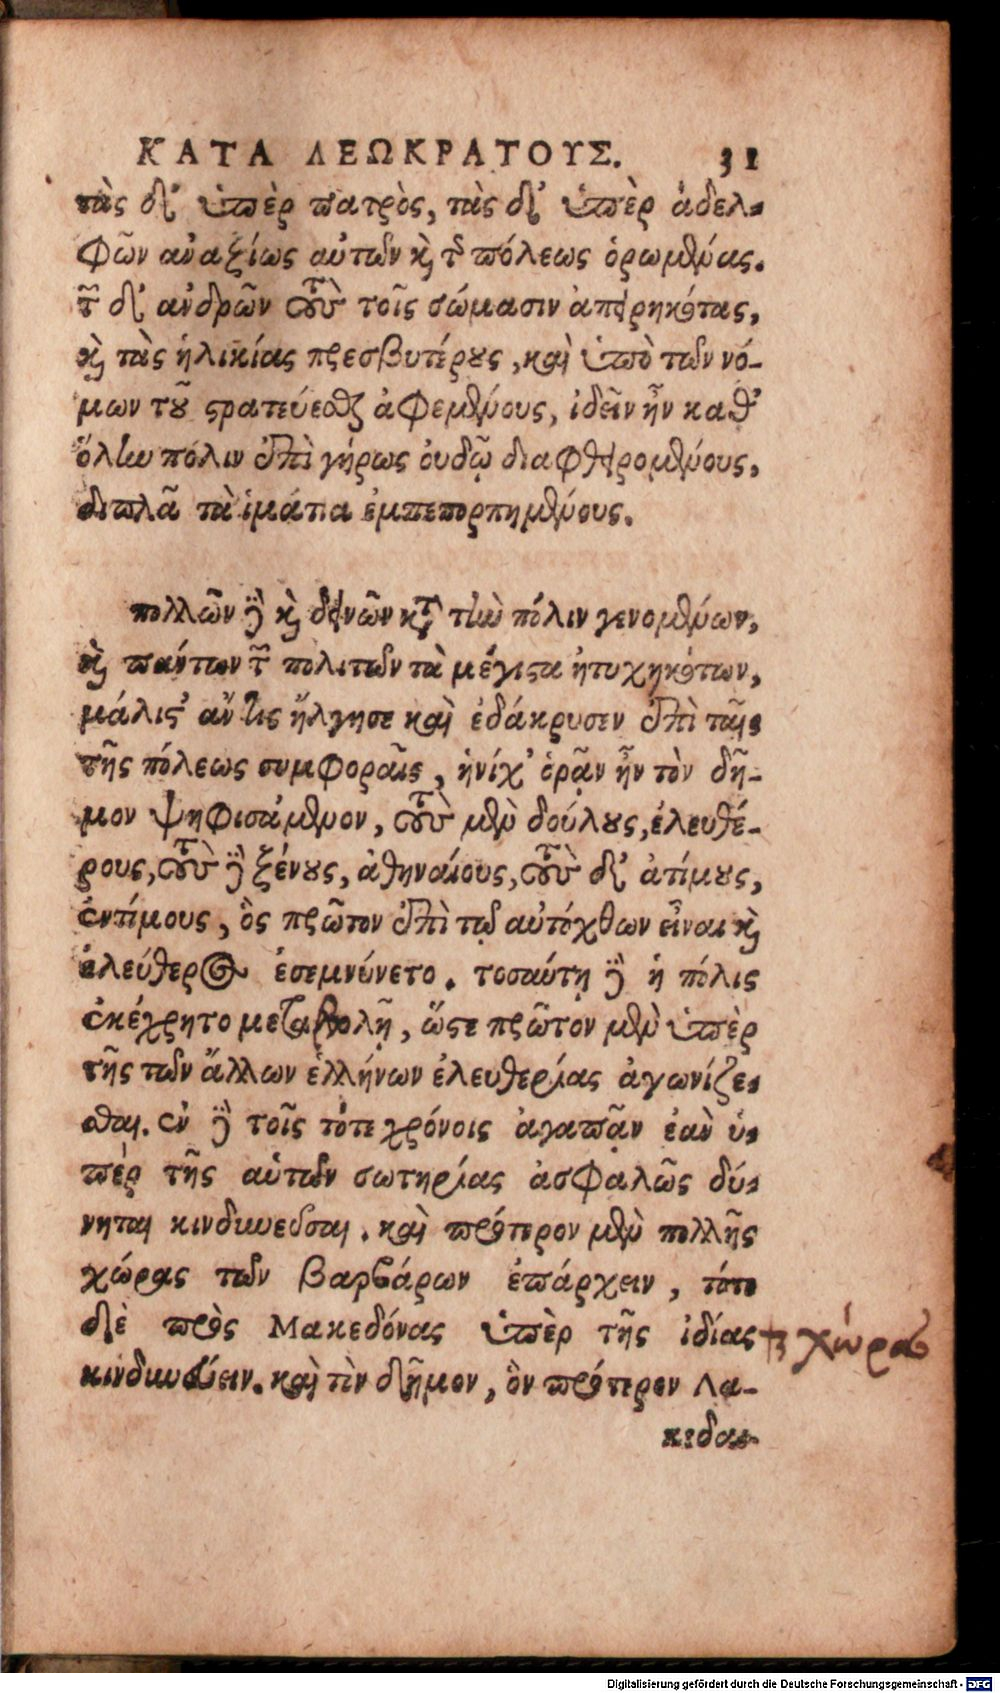 ΚΑΤΑ ΛΕΩΚΡΑΤΟΥΣ. 31
τὰς δ' ὑπὲρ πατρὸς, τὰς δ' ὑπὲρ ἀδελ-
φῶν ἀναξίως αὑτῶν καὶ τῆς πόλεως ὁρωμένας.
τῶν δ' ἀνδρῶν τοὺς τοῖς σώμασιν ἀπειρηκότας,
καὶ τὰς ἡλικίας πρεσβυτέρους, καὶ ὑπὸ τῶν νό-
μων τοῦ στρατεύεσθαι ἀφεμένους, ἰδεῖν ἦν καθ'
ὅλην πόλιν ἐπὶ γήρως οὐδῷ διαφθειρομένους,
διπλᾶ τὰ ἱμάτια ἐμπεπορπημένους.
πολλῶν δὲ καὶ δεινῶν κατὰ τὴν πόλιν γενομένων,
καὶ πάντων τῶν πολιτῶν τὰ μέγιστα ἠτυχηκότων,
μάλιστ' ἄν τις ἤλγησε καὶ ἐδάκρυσεν ἐπὶ ταῖς
τῆς πόλεως συμφοραῖς, ἡνίχ' ὁρᾷν ἦν τὸν δῆ-
μον ψηφισάμενον, τοὺς μὲν δούλους, ἐλευθέ-
ρους, τοὺς δὲ ξένους, ἀθηναίους, τοὺς δ' ἀτίμους,
ἐντίμους, ὃς πρῶτον ἐπὶ τῷ αὐτόχθων εἶναι καὶ
ἐλεύθερος ἐσεμνύνετο. τοσαύτῃ δὲ ἡ πόλις
ἐκέχρητο μεταβολῇ, ὥστε πρῶτον μὲν ὑπὲρ
τῆς τῶν ἄλλων ἑλλήνων ἐλευθερίας ἀγωνίζε-
σθαι. ἐν δὲ τοῖς τότε χρόνοις ἀγαπᾷν ἐὰν ὑ-
πὲρ τῆς αὑτῶν σωτηρίας ἀσφαλῶς δύ-
νηται κινδυνεῦσαι. καὶ πρότερον μὲν πολλῆς
χώρας τῶν βαρβάρων ἐπάρχειν, τότε
δὲ πρὸς Μακεδόνας ὑπὲρ τῆς ἰδίας χώρας
κινδυνεύειν. καὶ τὸν δῆμον, ὃν πρότερον Λα-
κεδαι-
Digitalisierung gefördert durch die Deutsche Forschungsgemeinschaft - DFG